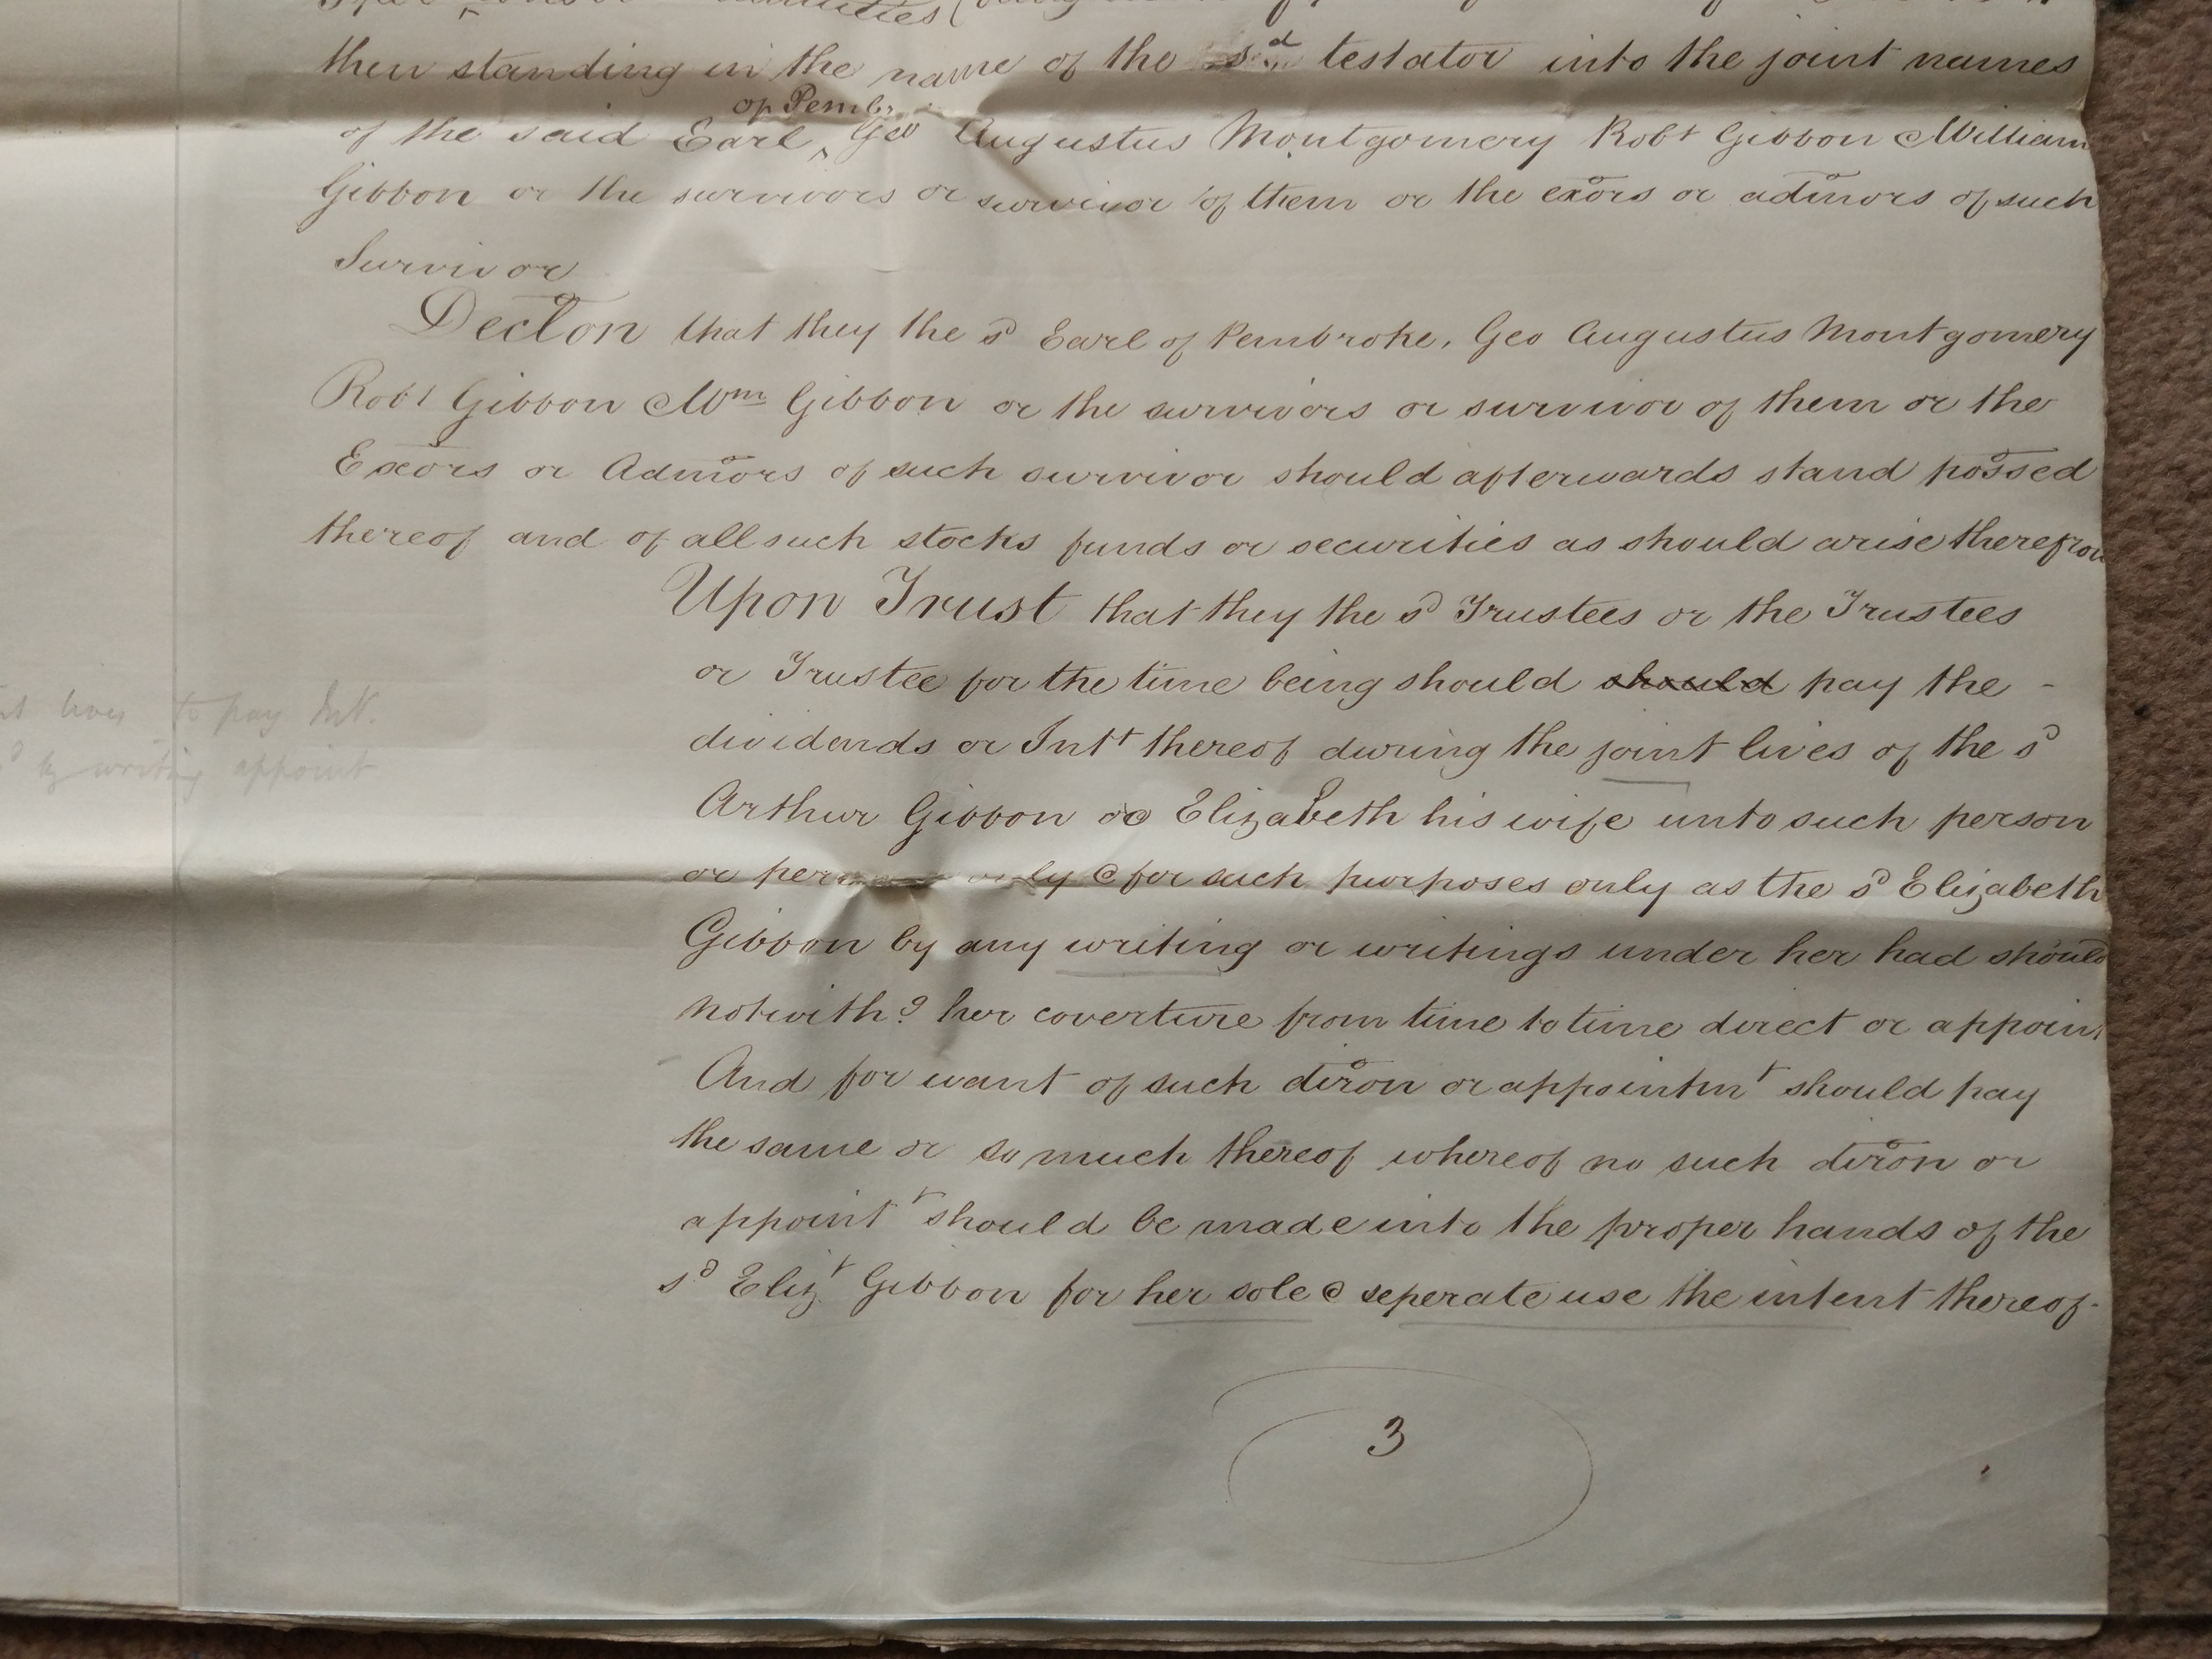 then standing in the name of the sd testator into the joint names
of Pemb.
of the said Earl ^ Geo Augustus Montgomery Robt Gibbon & William
Gibbon or the survivors or survivor of them or the exors or admors of such
Survivor
Declon that they the sd Earl of Pembroke, Geo Augustus Montgomery
Robt Gibbon & Wm Gibbon or the survivors or survivor of them or the
Exors or Admors of such survivor should afterwards stand possed
thereof and of all such stocks funds or securities as should arise therefrom
Upon Trust that they the sd Trustees or the Trustees
or Trustee for the time being should should pay the -
dividends or Intt thereof during the joint lives of the sd
Arthur Gibbon & Elizabeth his wife unto such person
or only & for such purposes only as the sd Elizabeth
Gibbon by any writing or writings under her had should
notwithd her coverture from time to time direct or appoint
And for want of such diron or appointmt should pay
the same or so much thereof whereof no such diron or
appointt should be made into the proper hands of the
sd Elizt Gibbon for her sole & seperate use the intent thereof-
lives to pay Int.
by writing appoint
3